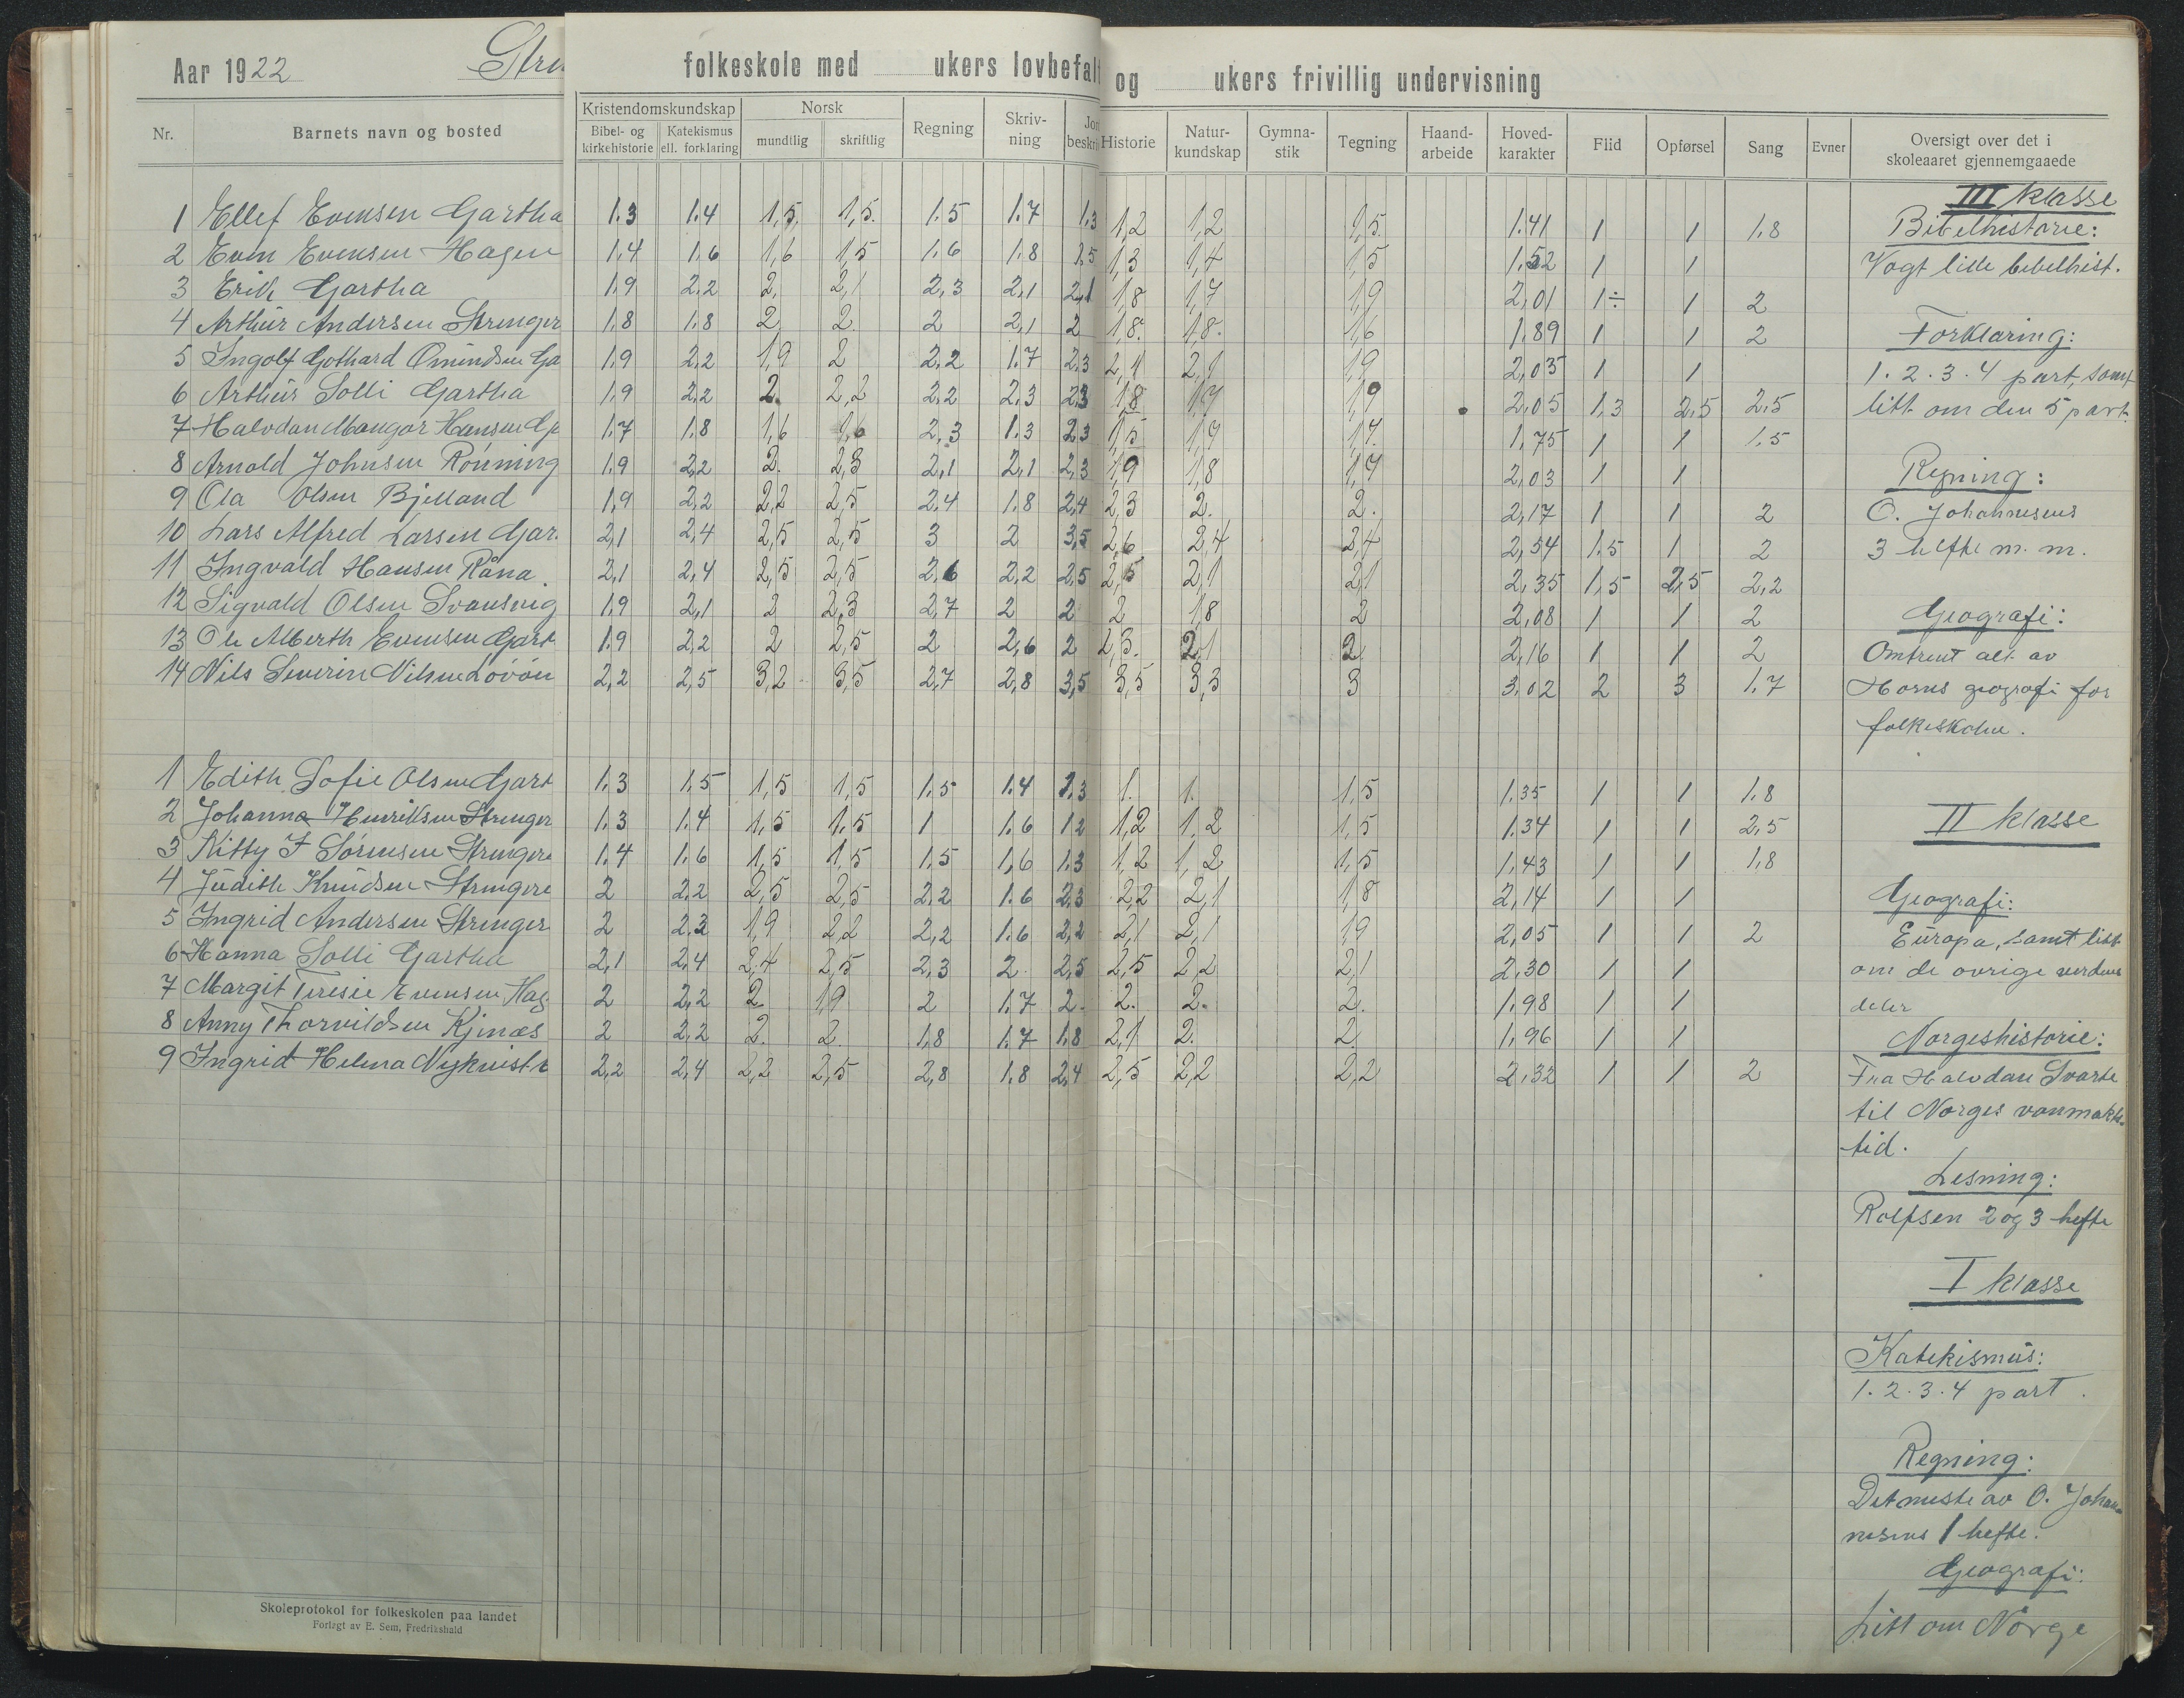 Aar 1922 Stre folkeskole med ukers lovbefalt og ukers frivillig undervisning
Nr. Barnets navn og bosted Kristendomskundskap Bibel- og kirkehistorie Katekismus ell. forklaring Norsk mundtlig skriftlig Regning Skriv- ning Jor beskri Historie Natur- kundskap Gymna- stik Tegning Haand- arbeide Hoved- karakter Flid Opførsel Sang Evner Oversigt over det i skoleaaret gjennemgaaede
III klasse
1 Ellef Evensen Gartha 1.3 1.4 1,5 1,5 1.5 1.7 1.3 1,2 1,2 1,5 1.41 1 1 1.8 Bibelhistorie:
2 Even Evensen Hagen 1.4 1.6 1,6 1,5 1.6 1.8 1.5 1,3 1,4 1,5 1.52 1 1 Vogt lille bibelhist.
3 Erik Gartha 1.9 2.2 2, 2,1 2,3 2,1 2,1 1,8 1,7 1,9 2,01 1÷ 1 2
4 Arthur Andersen Strenger 1.8 1.8 2 2 2 2,1 2 1,8 1,8 1,6 1.89 1 1 2 Forklaring:
5 Ingolf Gothard Omundsen Ga 1.9 2.2 1,9 2 2.2 1.7 2.3 2,1 2,1 1,9 2,03 1 1 1.2.3.4 part, samt
6 Arthur Solli Gartha 1.9 2.2 2. 2,2 2.2 2.3 2.3 1,8 1,7 1,9 2,05 1,3 2,5 2,5 litt om den 5 part.
7 Halvdan Mangor Hansen Gj 1.7 1.8 1,6 1,6 2,3 1.3 2.3 1,5 1,7 1,7 1,75 1 1 1.5
8 Arnold Johnsen Rönning 1.9 2,2 2. 2,3 2,1 2,1 2,3 1,9 1,8 1,7 2,03 1 1 Regning:
9 Ola Olsen Bjelland 1,9 2,2 2,2 2,5 2.4 1.8 2,4 2,3 2. 2. 2,17 1 1 2 O. Johannesens
10 Lars Alfred Larsen Gar. 2,1 2,4 2,5 2,5 3 2 3,5 2,6 2,4 2,4 2,54 1.5 1 2 3 hefte m. m.
11 Ingvald Hansen Råna. 2,1 2,4 2,5 2,5 2,6 2,2 2,5 2,5 2,1 2,1 2,35 1,5 2,5 2,2
12 Sigvald Olsen Svansvig 1.9 2,1 2 2,3 2,7 2 2 2 1,8 2 2,08 1 1 2 Geografi:
13 Ole Alberth Evensen Gart 1.9 2,2 2 2,5 2 2,6 2 2,3. 2,1 2 2,16 1 1 2 Omtrent alt av
14 Nils Severin Nilsen Lövöen 2,2 2,5 3,2 3,5 2,7 2,8 3,5 3,5 3,3 3 3,02 2 3 1.7 Horns geografi for
folkeskolen.
1 Edith Sofie Olsen Gart 1.3 1.5 1,5 1,5 1.5 1.4 1.3 1. 1. 1,5 1.35 1 1 1.8
2 Johanna Henriksen Strenger 1.3 1.4 1,5 1.5 1 1.6 1.2 1,2 1,2 1,5 1.34 1 1 2,5 II klasse
3 Kitty J Sörensen Strengere 1.4 1.6 1,5 1,5 1.5 1,6 1.3 1,2 1,2 1,5 1,43 1 1 1,8
4 Judith Knudsen Strengere 2 2.2 2,5 2,5 2.2 1.6 2.3 2,2 2,1 1,8 2,14 1 1 Geografi:
5 Ingrid Andersen Strenger 2 2.3 1,9 2,2 2,2 1.6 2,2 2,1 2,1 1,9 2,05 1 1 2 Europa, samt litt
6 Hanna Solli Gartha 2,1 2,4 2,4 2,5 2,3 2 2,5 2,5 2,2 2,1 2,30 1 1 om de ovrige verdens
7 Margit Teresie Evensen Hag. 2 2,2 2. 1,9 2 1.7 2. 2. 2. 2. 1.98 1 1 deler
8 Anny Thorvildsen Kjenæs 2 2,2 2. 2. 1.8 1.7 1.8 2,1 2. 2 1,96 1 1 Norgeshistorie:
9 Ingrid Helena Nykvist 2,2 2,4 2,2 2,5 2,8 1.8 2,4 2,5 2,2 2,2 2,32 1 1 2 Fra Halvdan Svarte
til Norges vanmakts-
tid.
Lesning:
Rolfsen 2 og 3 hefte
I klasse
Katekismus:
1.2.3.4 part.
Regning:
Det meste av O. Johan-
nesens 1 hefte.
Geografi:
Litt om Norge
Skoleprotokol for folkeskolen paa landet
Forlagt av E. Sem, Fredrikshald